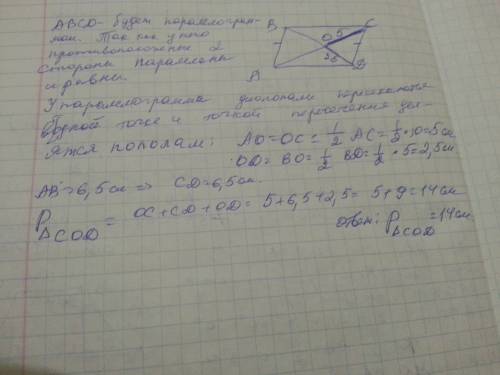 ABCD - будет параллелограм-
мом. Так как у него
противоположные 2
стороны параллельны
и равны.
B C
O 5
2,5
A D
У параллелограмма диагонали пересекаются
в одной точке и точкой пересечения дел-
ятся пополам: AO = OC = 1/2 AC = 1/2 · 10 = 5 см
OD = BO = 1/2 BD = 1/2 · 5 = 2,5 см
AB = 6,5 см => CD = 6,5 см.
P△COD = OC + CD + OD = 5 + 6,5 + 2,5 = 5 + 9 = 14 см
ответ: P△COD = 14 см